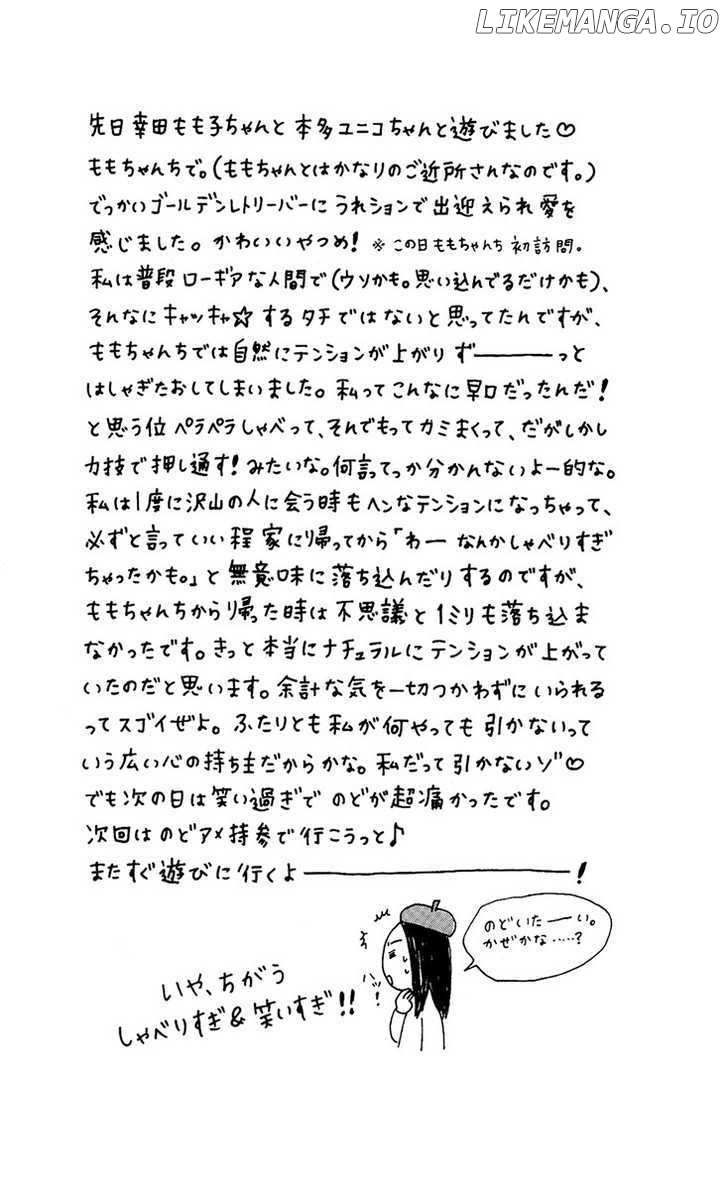 LIKEMANGA.IO
先日幸田もも子ちゃんと本多ユニコちゃんと遊びました♡
ももちゃんちで。(ももちゃんとはかなりのご近所さんなのです。)
でっかいゴールデンレトリーバーにうれションで出迎えられ愛を
感じました。かわいいやつめ! ※この日ももちゃんち初訪問。
私は普段ローギアな人間で(ウソかも。思い込んでるだけかも)、
そんなにキャッキャ☆するタチではないと思ってたんですが、
ももちゃんちでは自然にテンションが上がりずーーーっと
はしゃぎたおしてしまいました。私ってこんなに早口だったんだ!
と思う位ペラペラしゃべって、そんでもってカミまくって、だがしかし
力技で押し通す!みたいな。何言ってっか分かんないよー的な。
私は1度に沢山の人に会う時もヘンなテンションになっちゃって、
必ずと言っていい程家に帰ってから「わー なんかしゃべりすぎ
ちゃったかも。」と無意味に落ち込んだりするのですが、
ももちゃんちから帰った時は不思議と1ミリも落ち込ま
なかったです。きっと本当にナチュラルにテンションが上がって
いたのだと思います。余計な気を一切つかわずにいられる
ってスゴイぜよ。ふたりとも私が何やっても引かないって
いう広い心の持ち主だからかな。私だって引かないゾ♡
でも次の日は笑い過ぎでのどが超痛かったです。
次回はのどアメ持参で行こうっと♪
またすぐ遊びに行くよーーーーーー!
のどいたーい。
かぜかな……?
ハッ!
いや、ちがう
しゃべりすぎ&笑いすぎ!!